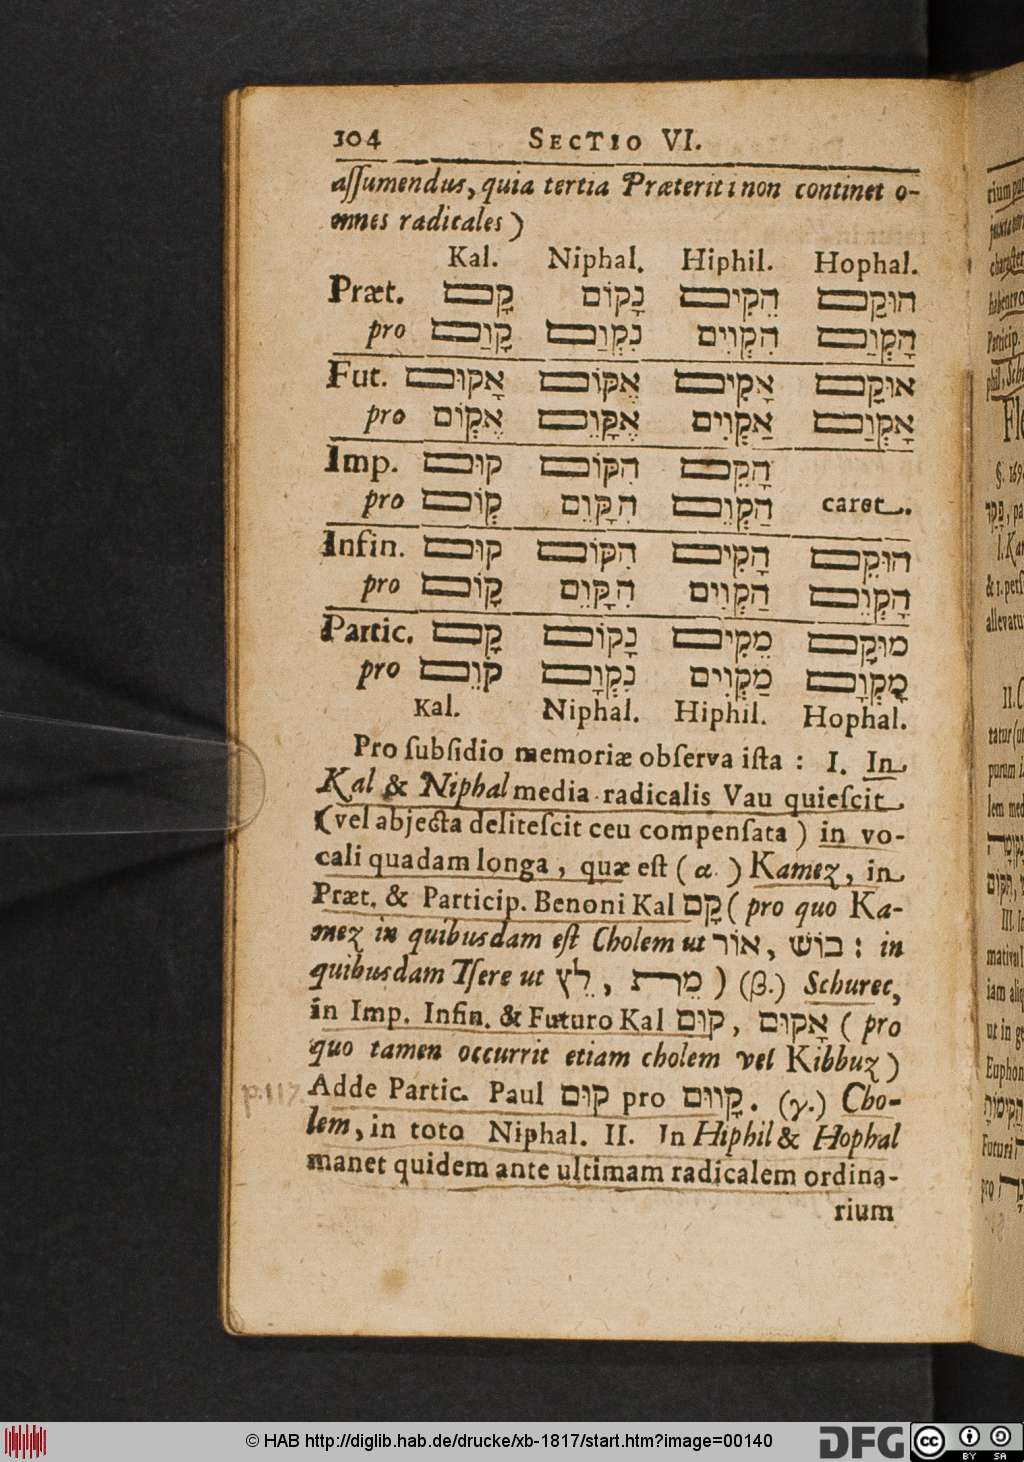 304 SECTIO VI.
aſſumendus, quia tertia Præteriti non continet o-
mnes radicales)
Kal. Niphal. Hiphil. Hophal.
Præt. קָם נָקוֹם הֵקִים הוּקַם
pro קָוַם נִקְוַם הִקְוִים הָקְוַם
Fut. אָקוּם אֶקּוֹם אָקִים אוּקַם
pro אֶקְוֹם אֶקָּוֵם אַקְוִים אָקְוַם
Imp. קוּם הִקּוֹם הָקֵם
pro קְוֹם הִקָּוֵם הַקְוֵם caret.
Infin. קוּם הִקּוֹם הָקִים הוּקֵם
pro קָוֹם הִקָּוֵם הַקְוִים הָקְוֵם
Partic. קָם נָקוֹם מֵקִים מוּקָם
pro קֹוֵם נִקְוָם מַקְוִים מָקְוָם
Kal. Niphal. Hiphil. Hophal.
Pro ſubſidio memoriæ obſerva iſta : I. In
Kal & Niphal media radicalis Vau quieſcit
(vel abjecta deliteſcit ceu compenſata) in vo-
cali quadam longa, quæ eſt (α.) Kamez, in
Præt. & Particip. Benoni Kal קָם (pro quo Ka-
mez in quibusdam eſt Cholem ut אוֹר, בוֹשׁ : in
quibusdam Tſere ut לֵץ, מֵרת) (β.) Schurec,
in Imp. Infin. & Futuro Kal קוּם, אָקוּם (pro
quo tamen occurrit etiam cholem vel Kibbuz)
Adde Partic. Paul קוּם pro קָווּם. (γ.) Cho-
lem, in toto Niphal. II. In Hiphil & Hophal
manet quidem ante ultimam radicalem ordina-
rium
p. 117
© HAB http://diglib.hab.de/drucke/xb-1817/start.htm?image=00140
DFG
cc BY SA